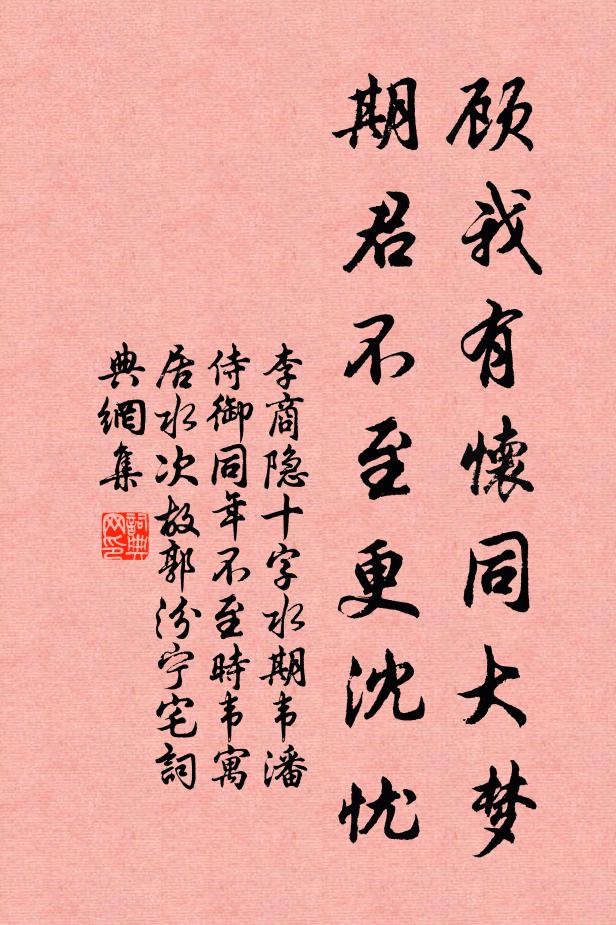 顾我有懷同大梦
期君不至更沈忧
李商隐十字水期韦潘
侍御同年不至時韦寓
居水次故郭汾宁宅詞
典網集
詞典
网印